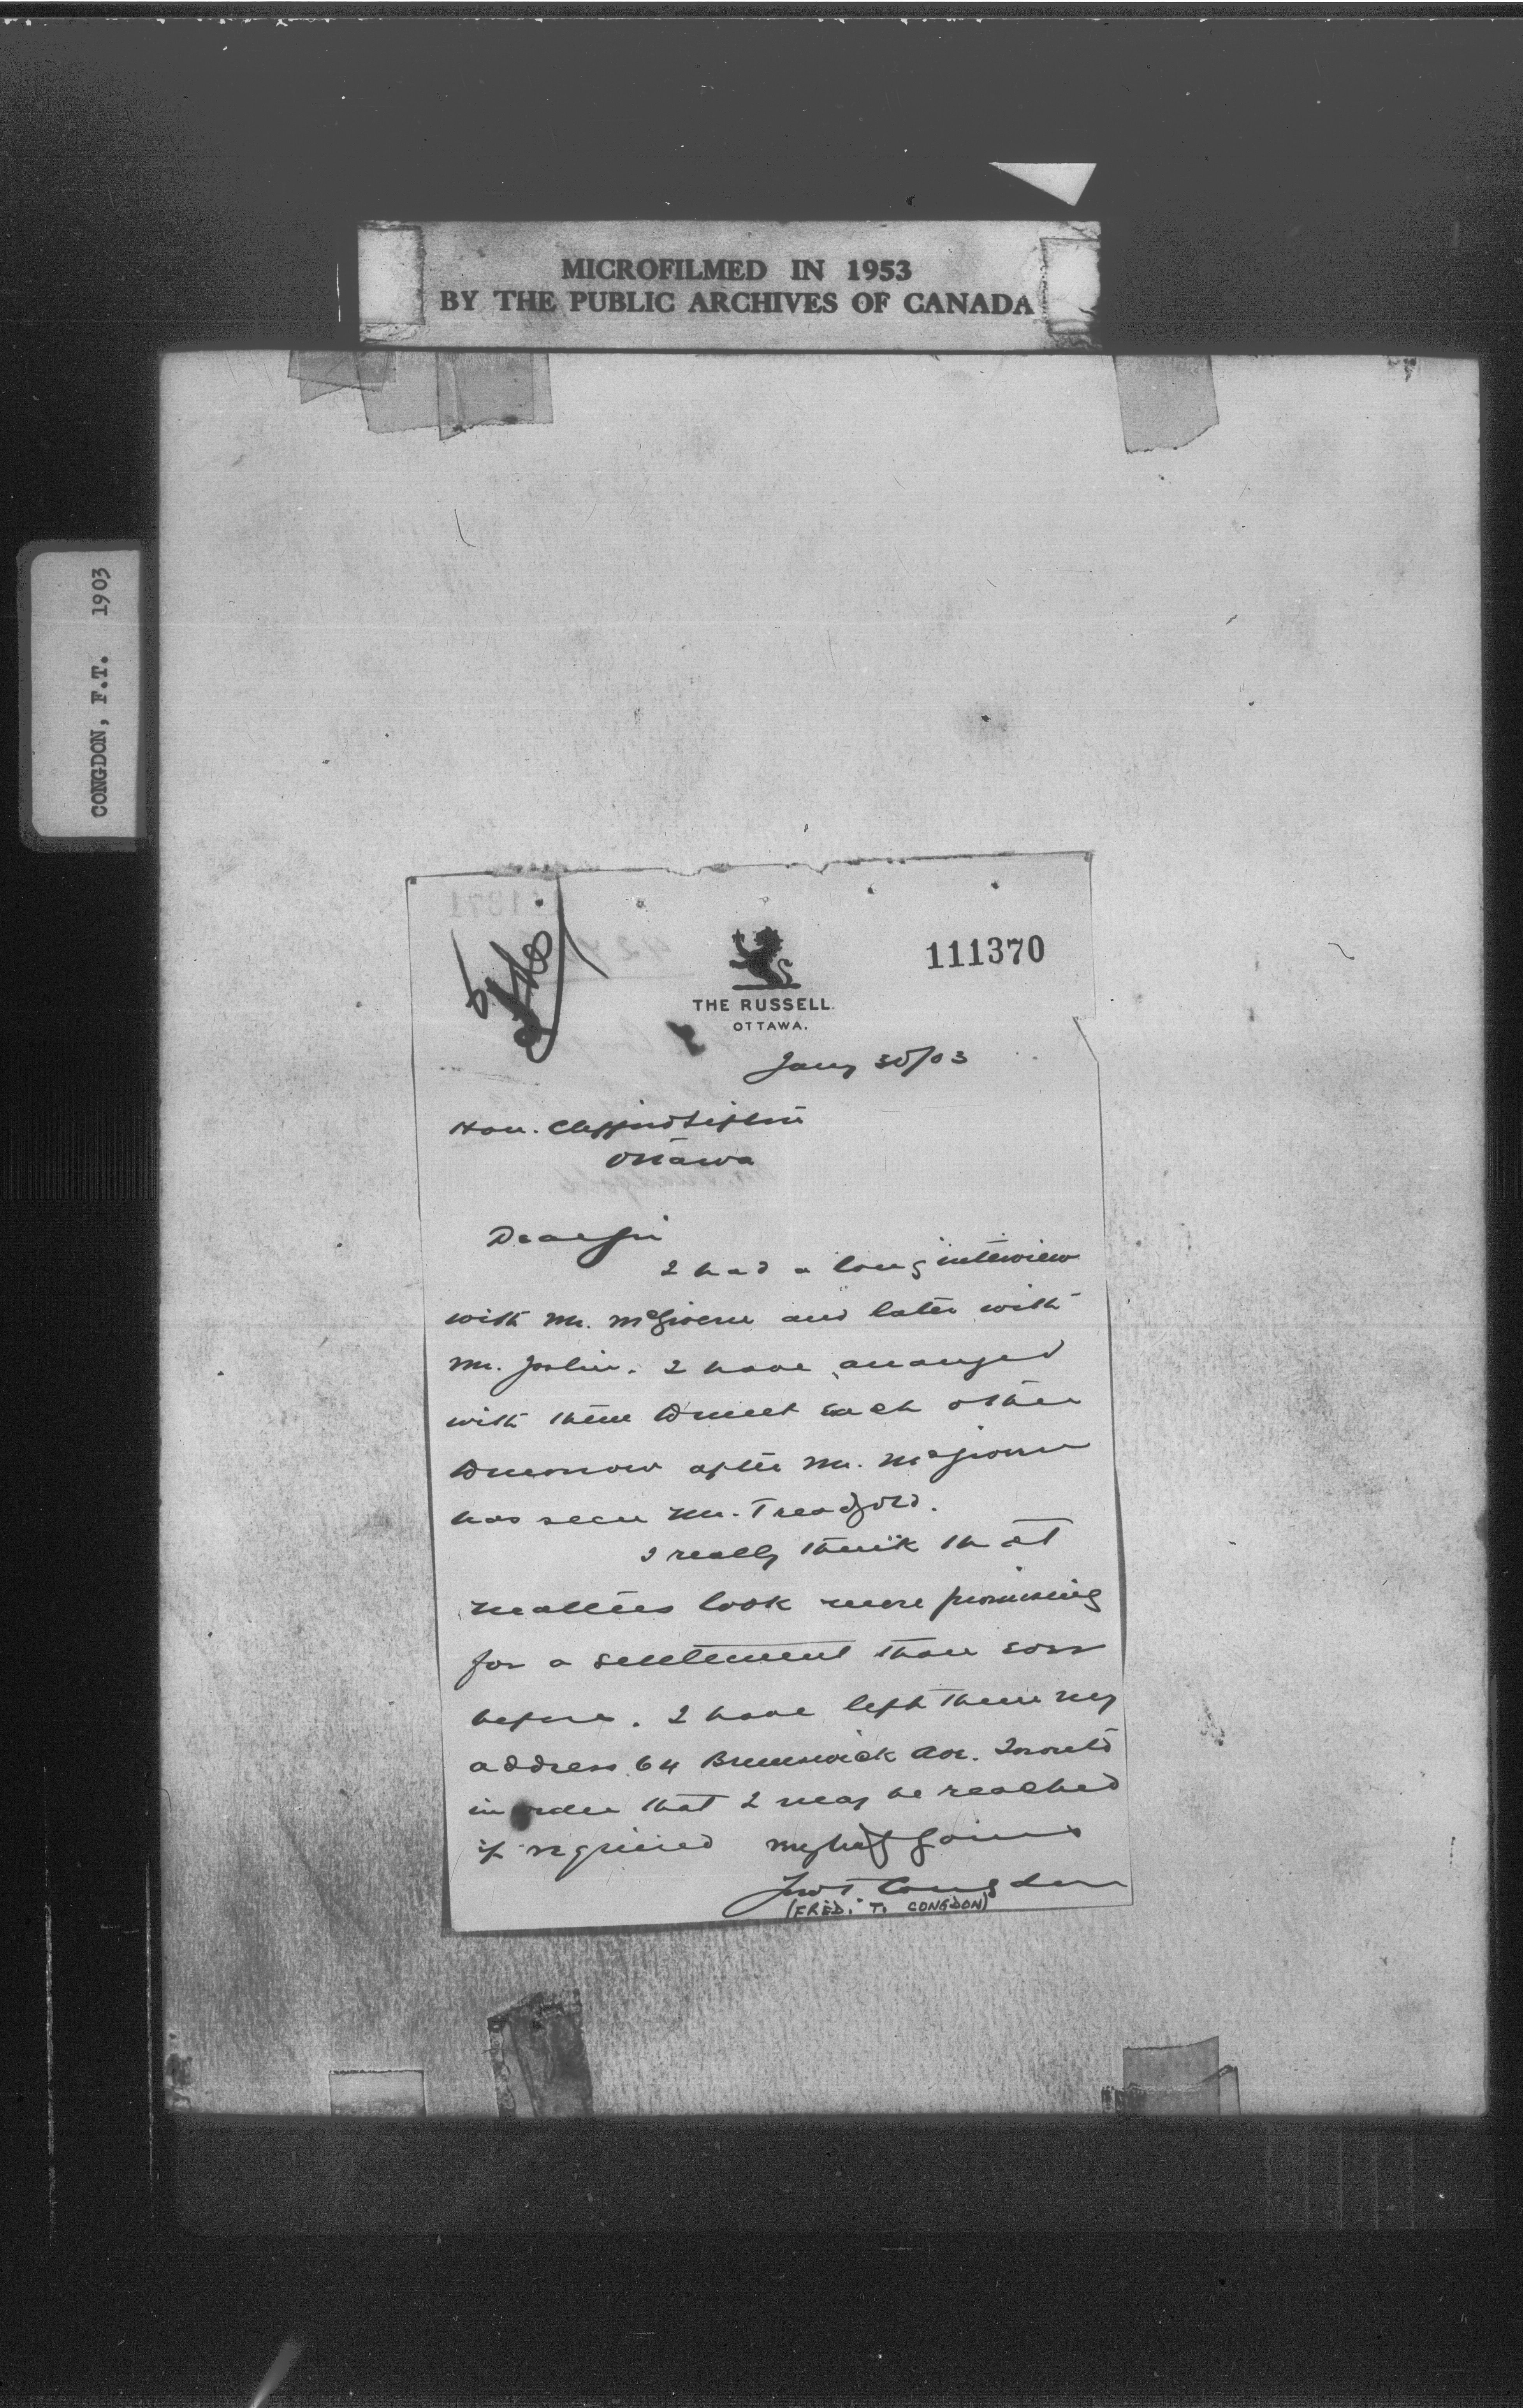 MICROFILMED IN 1953
BY THE PUBLIC ARCHIVES OF CANADA
CONGDON, F.T. 1903
111370
THE RUSSELL.
OTTAWA.
Jany 30/03
Hon. Clifford Sifton
Ottawa
Dear Sir
I had a long interview
with Mr. McGivern and later with
Mr. Joslin. I have arranged
with them to meet each other
tomorrow after Mr. McGivern
has seen Mr. Treadgold.
I really think that
matters look more promising
for a settlement than ever
before. I have left them my
address 64 Brunswick Ave. Toronto
in order that I may be reached
if required
Fred T Congdon
(FRED. T. CONGDON)